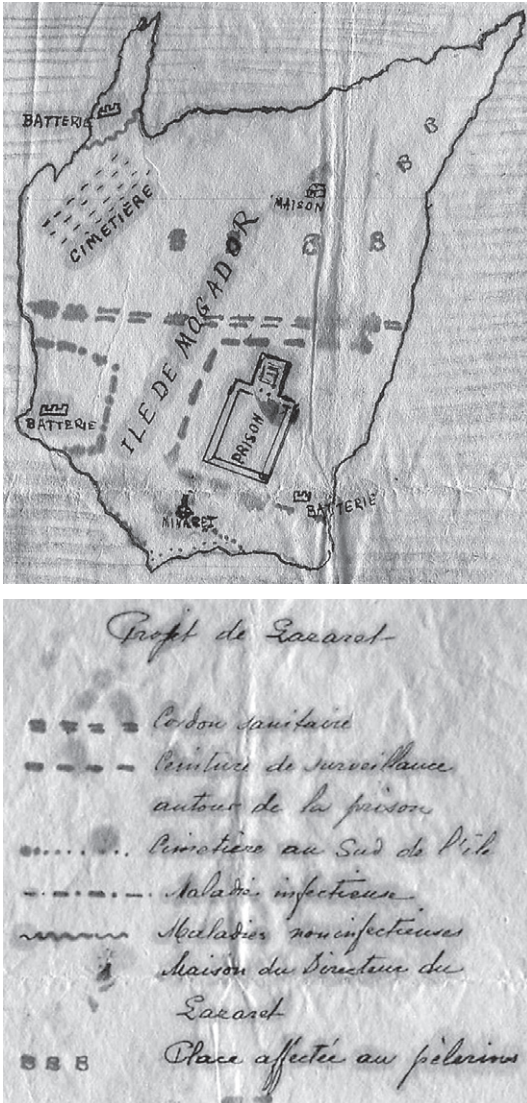 BATTERIE
CIMETIÈRE
MAISON
B
B
B
B
B
ILE DE MOGADOR
BATTERIE
PRISON
BATTERIE
MINARET
Projet de Lazaret
Cordon sanitaire
Ceinture de surveillance
autour de la prison
Cimetière au Sud de l'île
Maladie infectieuse
Maladies non infectieuses
Maison du Directeur du
Lazaret
B B B Place affectée au pèlerins